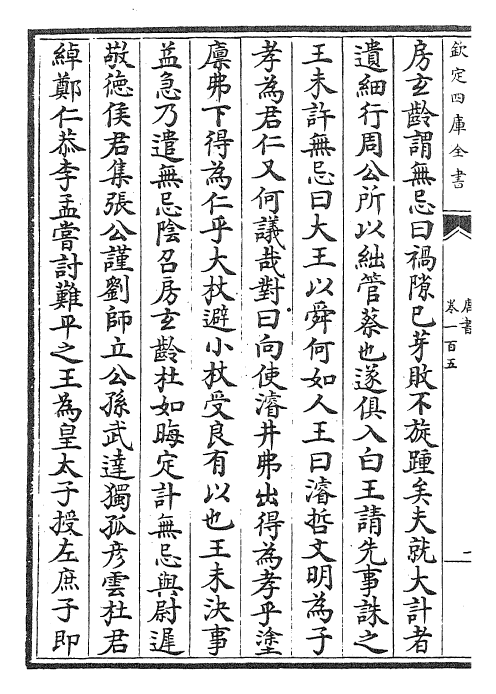 欽定四庫全書
唐書
卷一百五
二
房玄齡謂無忌曰禍隙已芽敗不旋踵矣夫就大計者
遺細行周公所以絀管蔡也遂俱入白王請先事誅之
王未許無忌曰大王以舜何如人王曰濬哲文明為子
孝為君仁又何議哉對曰向使濬井弗出得為孝乎塗
廩弗下得為仁乎大杖避小杖受良有以也王未決事
益急乃遣無忌陰召房玄齡杜如晦定計無忌與尉遲
敬德侯君集張公謹劉師立公孫武達獨孤彥雲杜君
綽鄭仁恭李孟嘗討難平之王為皇太子授左庶子即